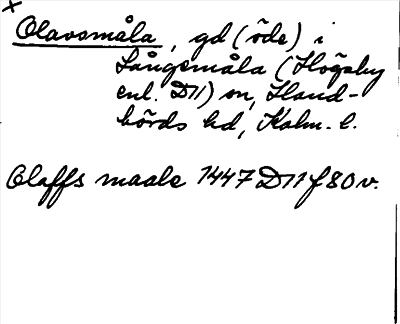 x
Olavsmåla, gd (öde) i
Långemåla (Högsby
enl. D11) sn, Hand-
börds hd, Kalm. l.
Olaffs maale 1447 D11 f 80 v.